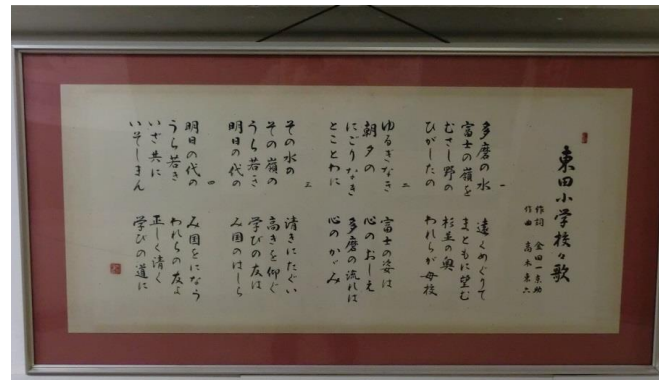 東田小学校々歌
作詞 金田一京助
作曲 高木東六
一
多磨の水 遠くめぐりて
富士の嶺を まともに望む
むさし野の 杉並の奥
ひがしたの われらが母校
二
ゆるぎなき 富士の姿は
朝夕の 心のおしえ
にごりなき 多磨の流れは
とことわに 心のかゞみ
三
その水の 清きにたぐい
その嶺の 高きを仰ぐ
うら若き 学びの友は
明日の代の み国のはしら
四
明日の代の み国をになう
うら若き われらの友よ
いざ共に 正しく清く
いそしまん 学びの道に